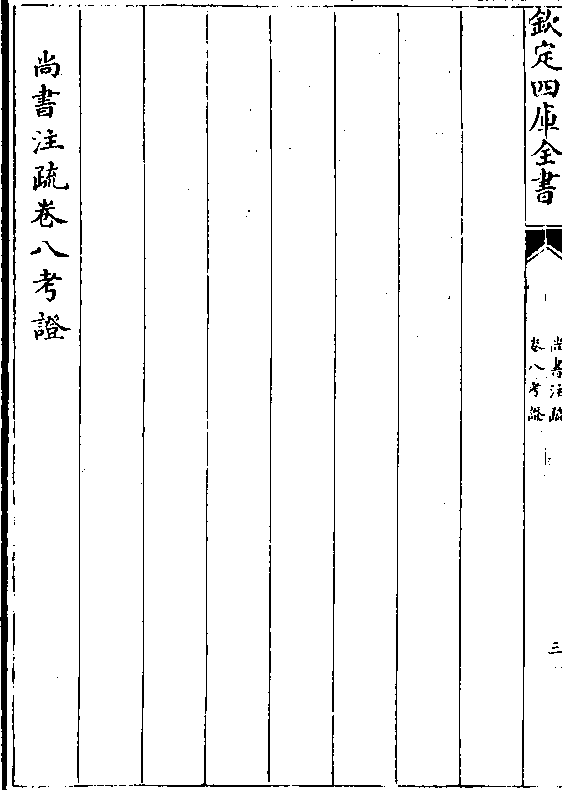 欽定四庫全書
尚書注疏
卷八考證
三
尚書注疏卷八考證